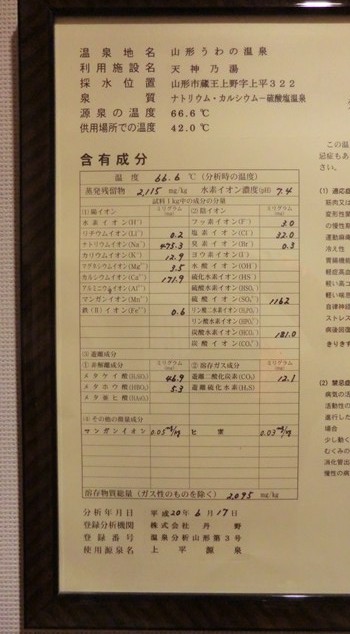 温泉地名 山形うわの温泉
利用施設名 天神乃湯
採水位置 山形市蔵王上野字上平322
泉質 ナトリウム・カルシウム－硫酸塩温泉
源泉の温度 66.6℃
供用場所での温度 42.0℃
含有成分
温度 66.6 ℃ (分析時の温度)
蒸発残留物 2,115 mg/kg 水素イオン濃度(pH) 7.4
試料1kg中の成分の分量
(1)陽イオン ミリグラム(mg) (2)陰イオン ミリグラム(mg)
水素イオン(H⁺) フッ素イオン(F⁻) 3.0
リチウムイオン(Li⁺) 0.2 塩素イオン(Cl⁻) 32.0
ナトリウムイオン(Na⁺) 475.3 臭素イオン(Br⁻) 0.3
カリウムイオン(K⁺) 12.9 ヨウ素イオン(I⁻)
マグネシウムイオン(Mg²⁺) 3.5 水酸イオン(OH⁻)
カルシウムイオン(Ca²⁺) 171.9 硫化水素イオン(HS⁻)
アルミニウムイオン(Al³⁺) 硫酸水素イオン(HSO₄⁻)
マンガンイオン(Mn²⁺) 硫酸イオン(SO₄²⁻) 1162
鉄(Ⅱ)イオン(Fe²⁺) 0.6
炭酸水素イオン(HCO₃⁻) 181.0
炭酸イオン(CO₃²⁻)
(3)遊離成分
①非解離成分 ミリグラム(mg) ②溶存ガス成分 ミリグラム(mg)
メタケイ酸(H₂SiO₃) 46.9 遊離二酸化炭素(CO₂) 12.1
メタホウ酸(HBO₂) 5.3 遊離硫化水素(H₂S)
メタ亜ヒ酸(HAsO₂)
(4)その他の微量成分
マンガンイオン 0.05mg/kg ヒ素 0.03mg/kg
溶存物質総量(ガス性のものを除く) 2,095 mg/kg
分析年月日 平成20年6月17日
登録分析機関 株式会社 丹野
登録番号 温泉分析山形第3号
使用源泉名 上平源泉
この温
忌症もあ
さい。
(1) 適応症
筋肉又は
変形性関
の慢性期
運動麻痺
冷え性
胃腸機能
軽症高血
軽い高コ
軽い喘息
自律神経
ストレス
病後回復
きりきず
(2) 禁忌症
病気の活
活動性の
進行した
場合
少し動く
むくみの
消化管出
慢性の病